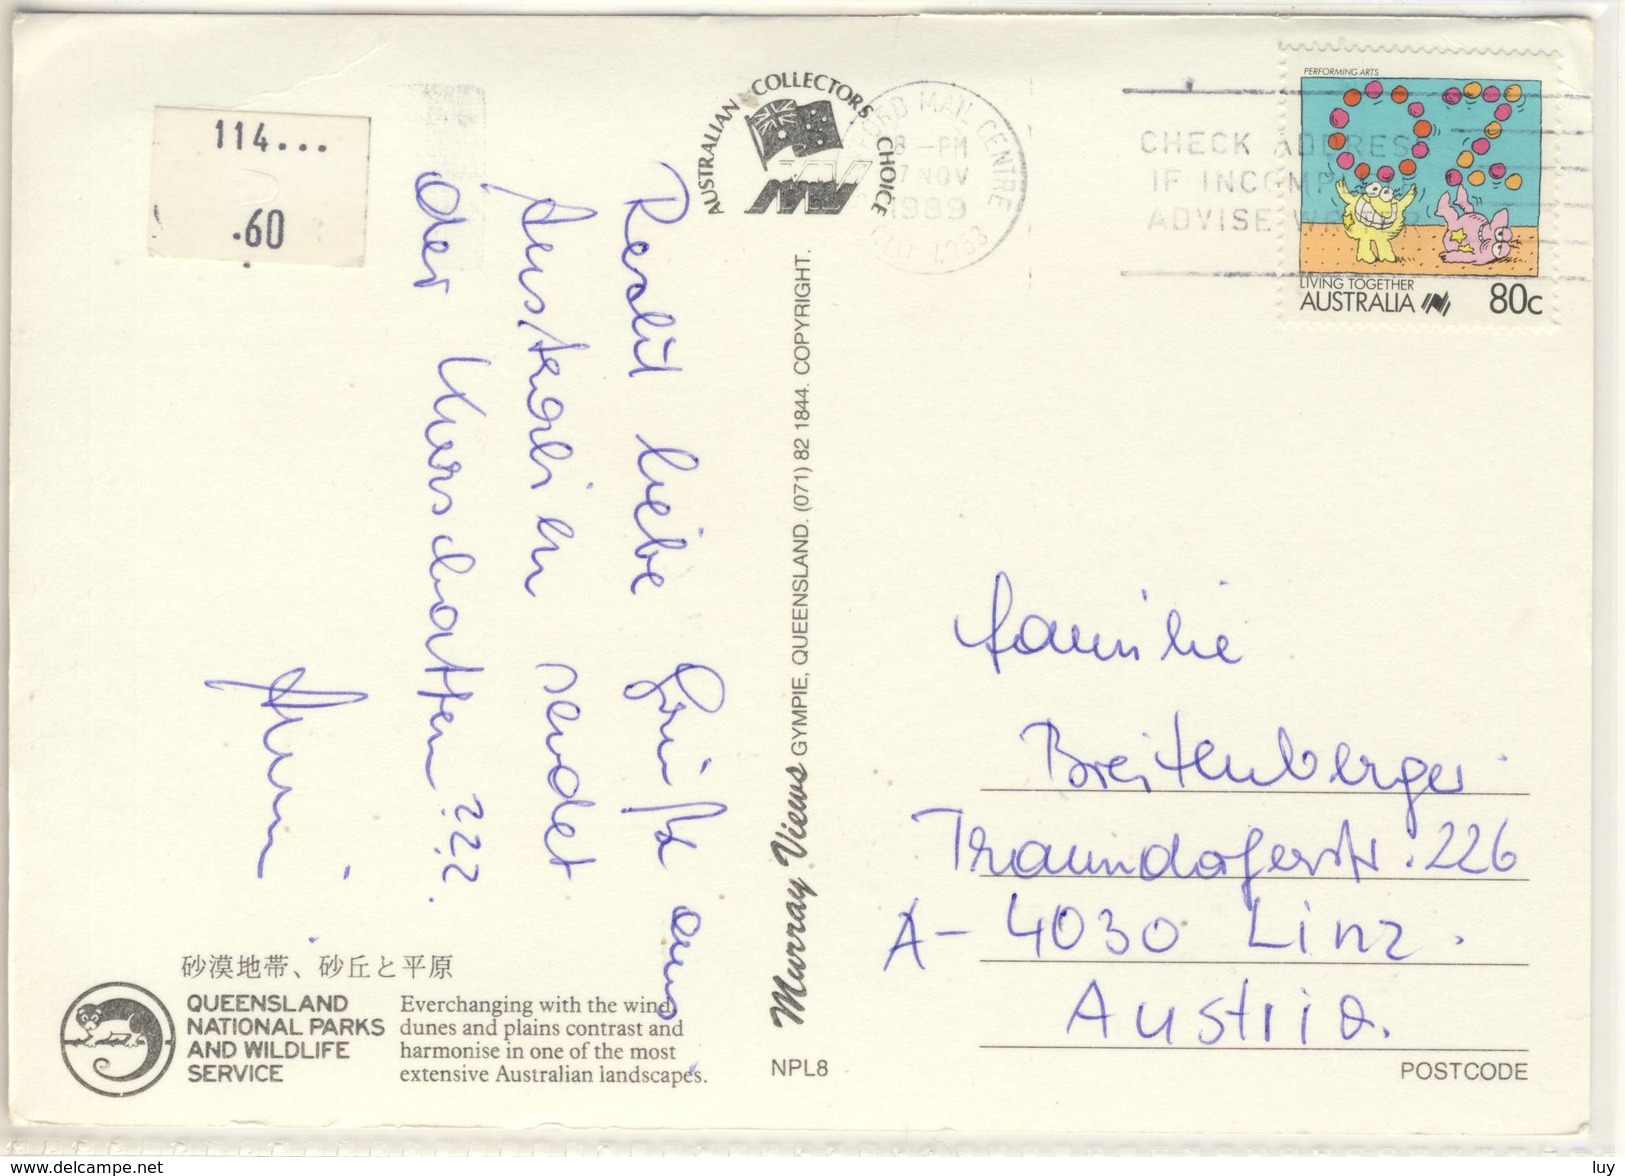 114...
.60
AUSTRALIAN COLLECTORS CHOICE
MAIL CENTRE
8 -PM
7 NOV
1989
4053
CHECK ADDRES
IF INCOMPL
ADVISE WRITER
PERFORMING ARTS
OZ
LIVING TOGETHER
AUSTRALIA 80c
liebe Grüße aus
Australien sendet
der
???
Murray Views GYMPIE, QUEENSLAND. (071) 82 1844. COPYRIGHT.
Familie
Breitenberger
Traundorferstr. 226
A- 4030 Linz.
Austria.
POSTCODE
砂漠地帯、砂丘と平原
QUEENSLAND
NATIONAL PARKS
AND WILDLIFE
SERVICE
Everchanging with the wind,
dunes and plains contrast and
harmonise in one of the most
extensive Australian landscapes.
NPL8
www.delcampe.net
luy